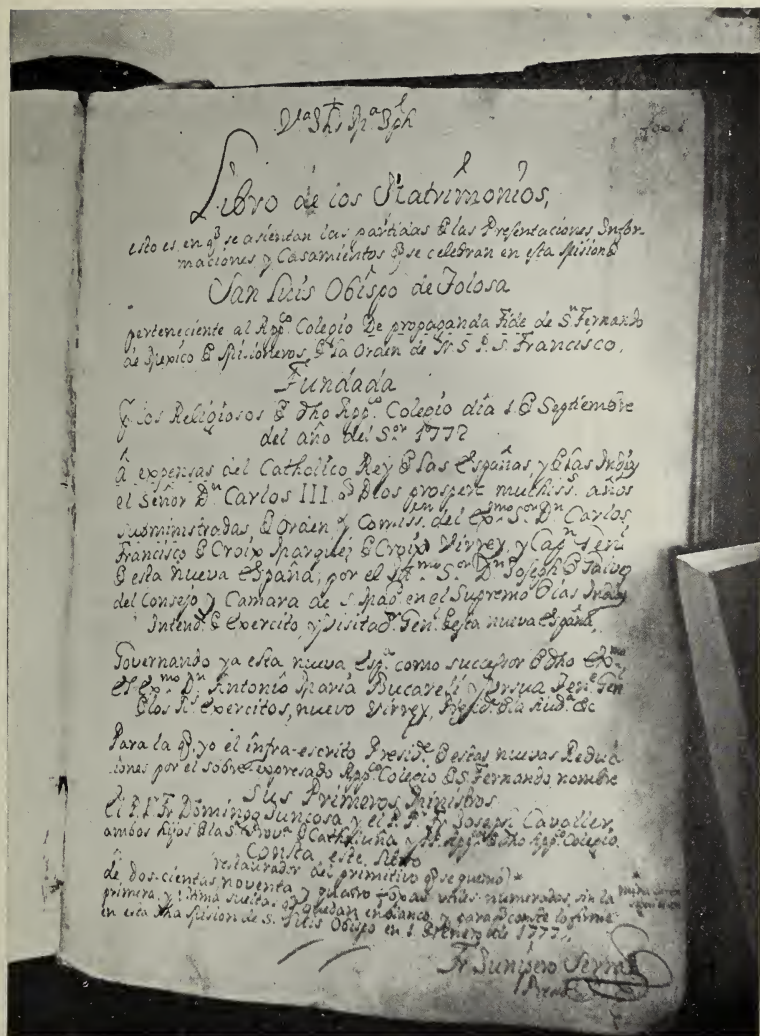 Libro de los Matrimonios,
esto es en q.e se asientan las partidas de las Presentaciones Infor-
maciones y Casamientos q.e se celebran en esta Mision de
San Luis Obispo de Tolosa
perteneciente al App.co Colegio De propaganda Fide de S.n Fernando
de Mexico de Misioneros de la Orden de N. S. P. S. Francisco.
Fundada
los Religiosos de dho App.co Colegio dia 1. de Septiembre
del año del S.or 1772
à expensas del Catholico Rey de las Españas, y de las Indias
el Señor D.n Carlos III. q.e Dios prospere muchiss. años
subministradas, de Orden, y Comiss.on del Ex.mo S.or D.n Carlos
Francisco de Croix Marques de Croix Virrey, y Cap.n Gen.l
de esta nueva España; por el S.or D.n Joseph de Galvez
del Consejo y Camara de S. Mag.d en el Supremo de las Indias
Intend.te de Exercito, y Visitad.or Gen.l de esta nueva España,
Governando ya esta nueva Esp.a como successor de dho Ex.mo
el Ex.mo D.n Antonio Maria Bucareli y Ursua Ten.te Gen.l
de los R.s Exercitos, nuevo Virrey, Presid.te &c
Para la q.e yo el infra-escrito Presid.te de estas nuevas Reduc-
ciones por el sobre-expresado App.co Colegio de S. Fernando nombre
Sus Primeros Ministros
el P. F. Fr. Domingo Juncosa, y el P. F. Fr. Joseph Cavaller,
ambos hijos de la S.ta Prov.a de Cathaluña y de dho App.co Colegio.
Consta este Libro
restaurador del primitivo q.e se quemò) *
de dos-cientas noventa y quatro foxas utiles numeradas, sin la
primera, y ultima sueltas q.e quedan en blanco, y para q.e conste lo firmè
en esta dha Mision de S. Luis Obispo en 1. de Enero de 1777.
Fr. Junipero Serra
Presid.te